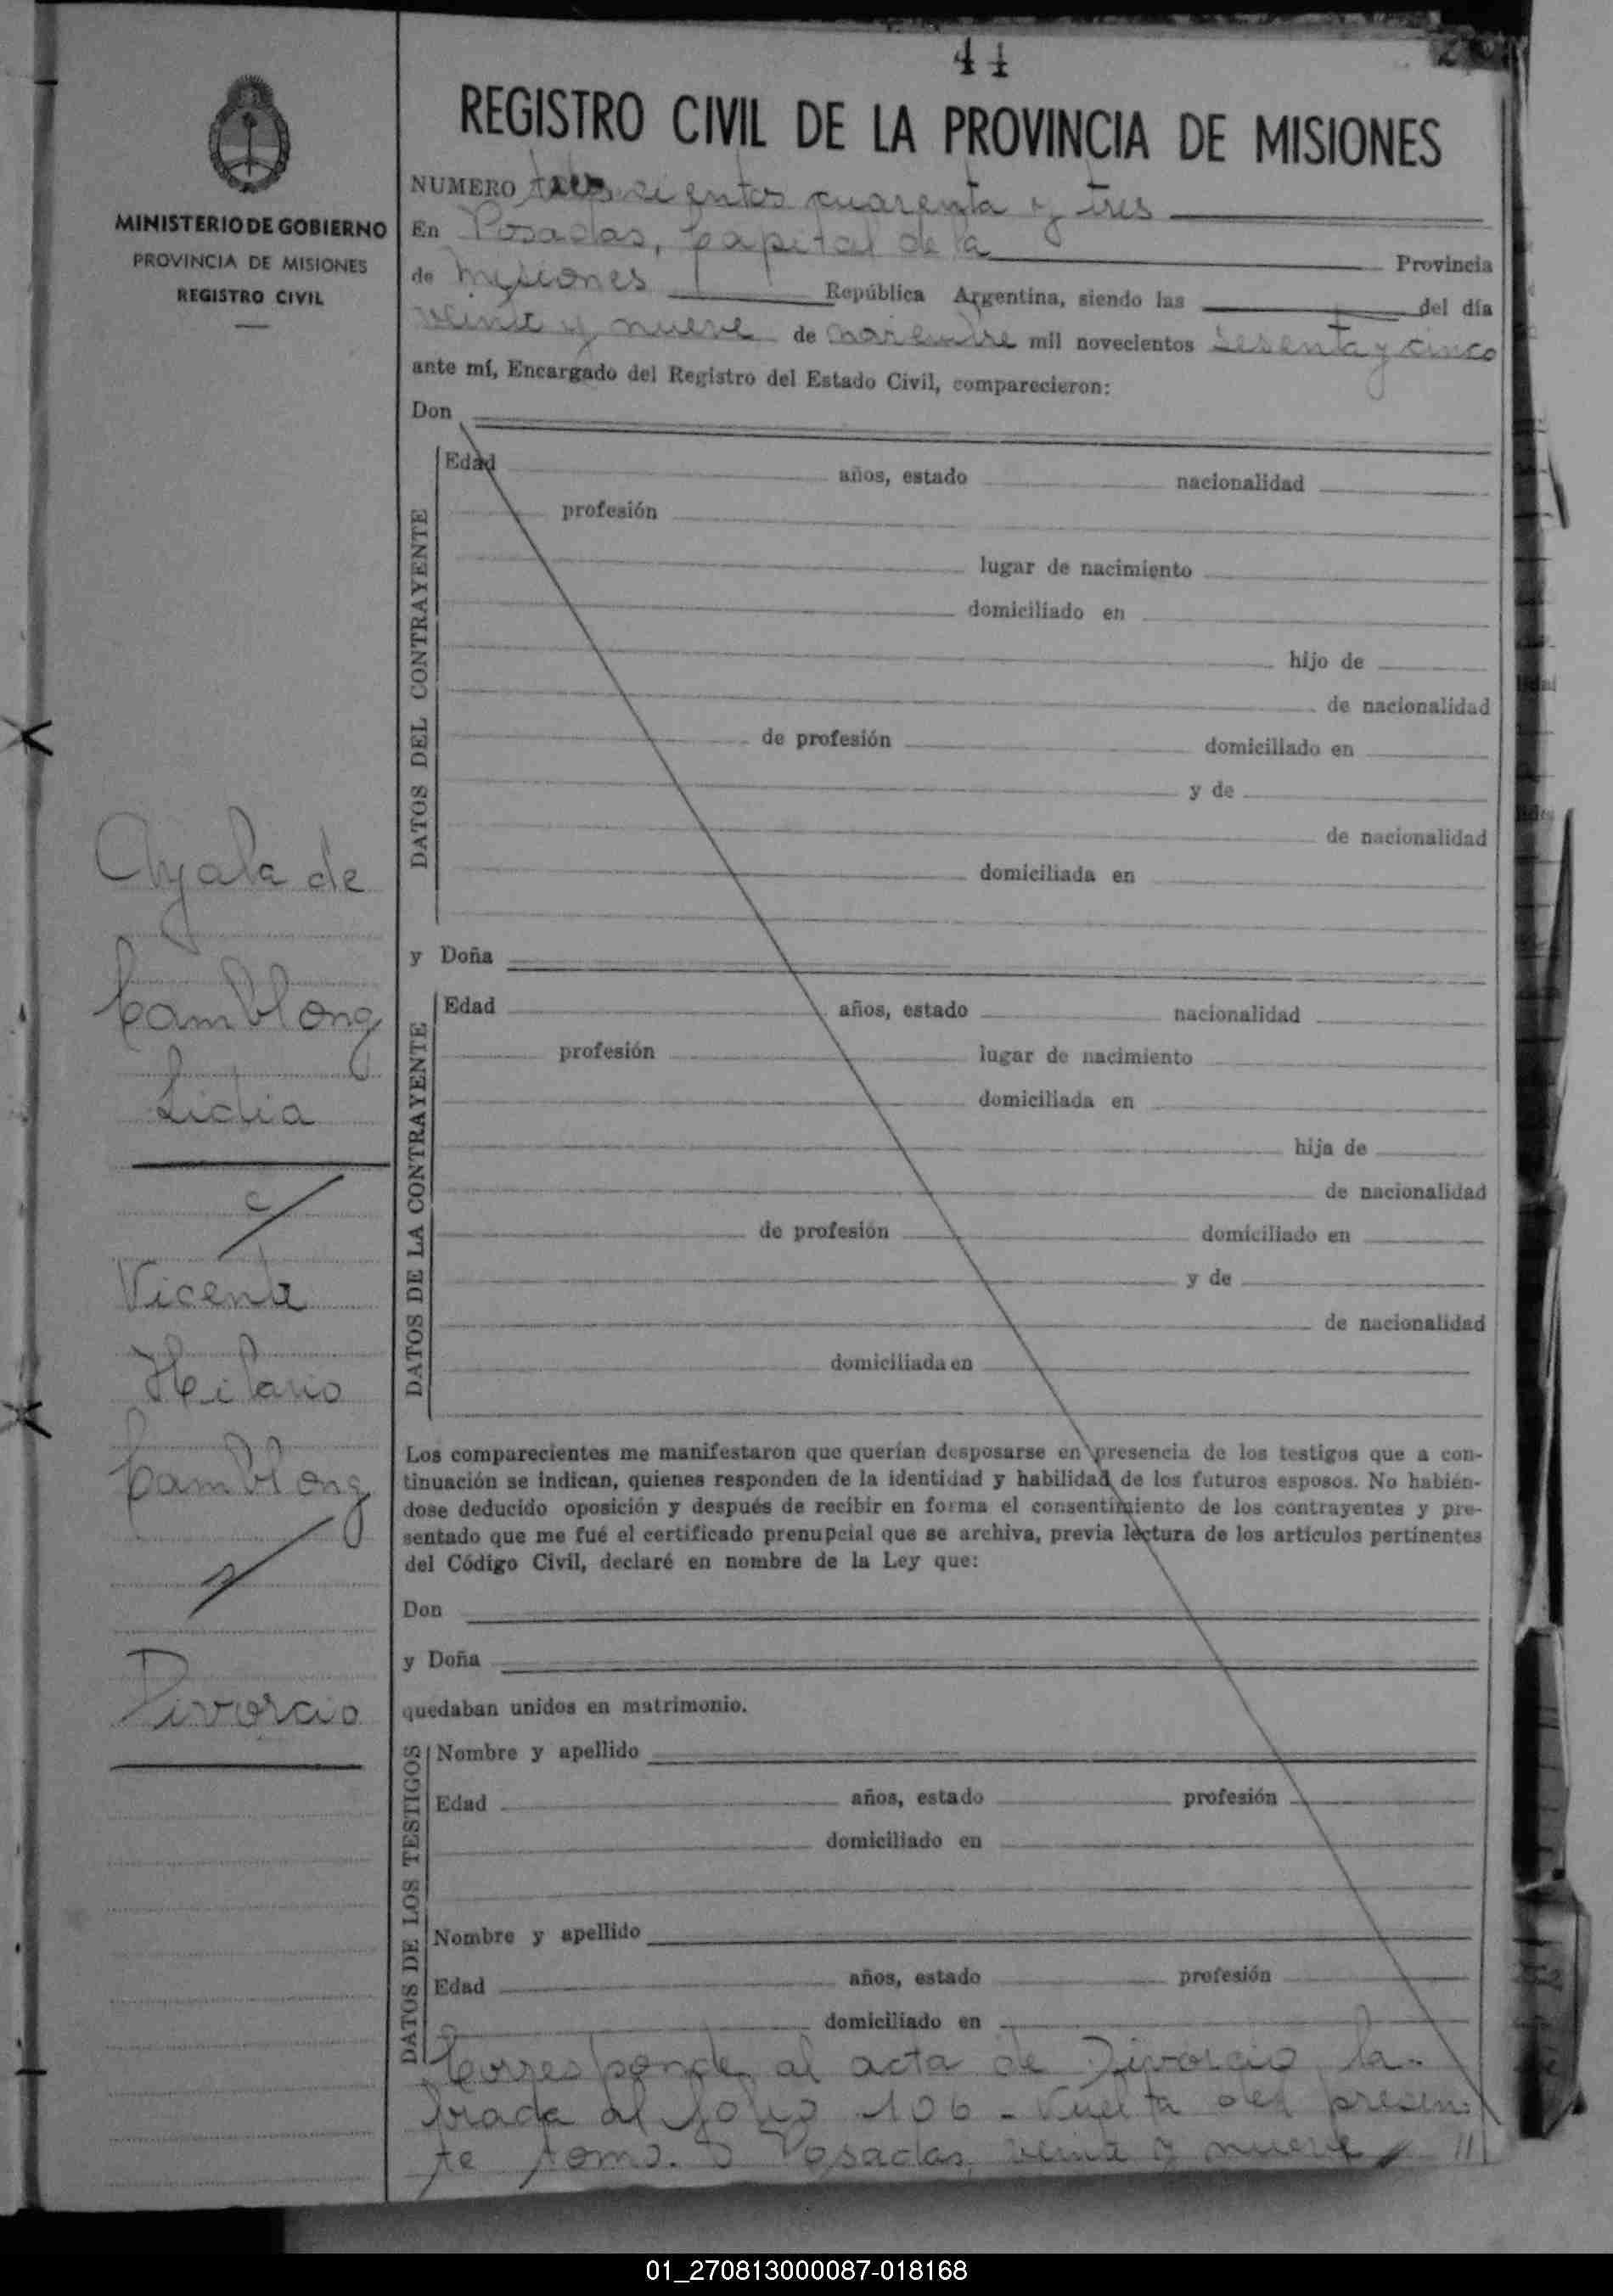 44
REGISTRO CIVIL DE LA PROVINCIA DE MISIONES
MINISTERIO DE GOBIERNO
PROVINCIA DE MISIONES
REGISTRO CIVIL
NUMERO trescientos cuarenta y tres
En Posadas, Capital de la Provincia
de Misiones República Argentina, siendo las del día
veinte y nueve de noviembre mil novecientos sesenta y cinco
ante mí, Encargado del Registro del Estado Civil, comparecieron:
Don
DATOS DEL CONTRAYENTE
Edad años, estado nacionalidad
profesión
lugar de nacimiento
domiciliado en
hijo de
de nacionalidad
de profesión domiciliado en
y de
de nacionalidad
domiciliada en
Ayala de
Camblong
Lidia
c/
Vicente
Hilario
Camblong
s/
Divorcio
y Doña
DATOS DE LA CONTRAYENTE
Edad años, estado nacionalidad
profesión lugar de nacimiento
domiciliada en
hija de
de nacionalidad
de profesión domiciliado en
y de
de nacionalidad
domiciliada en
Los comparecientes me manifestaron que querían desposarse en presencia de los testigos que a con-
tinuación se indican, quienes responden de la identidad y habilidad de los futuros esposos. No habién-
dose deducido oposición y después de recibir en forma el consentimiento de los contrayentes y pre-
sentado que me fué el certificado prenupcial que se archiva, previa lectura de los artículos pertinentes
del Código Civil, declaré en nombre de la Ley que:
Don
y Doña
quedaban unidos en matrimonio.
DATOS DE LOS TESTIGOS
Nombre y apellido
Edad años, estado profesión
domiciliado en
Nombre y apellido
Edad años, estado profesión
domiciliado en
Corresponde al acta de Divorcio la-
brada al folio 106 - Vuelta del presen-
te tomo. Posadas, veinte y nueve ///
01_270813000087-018168